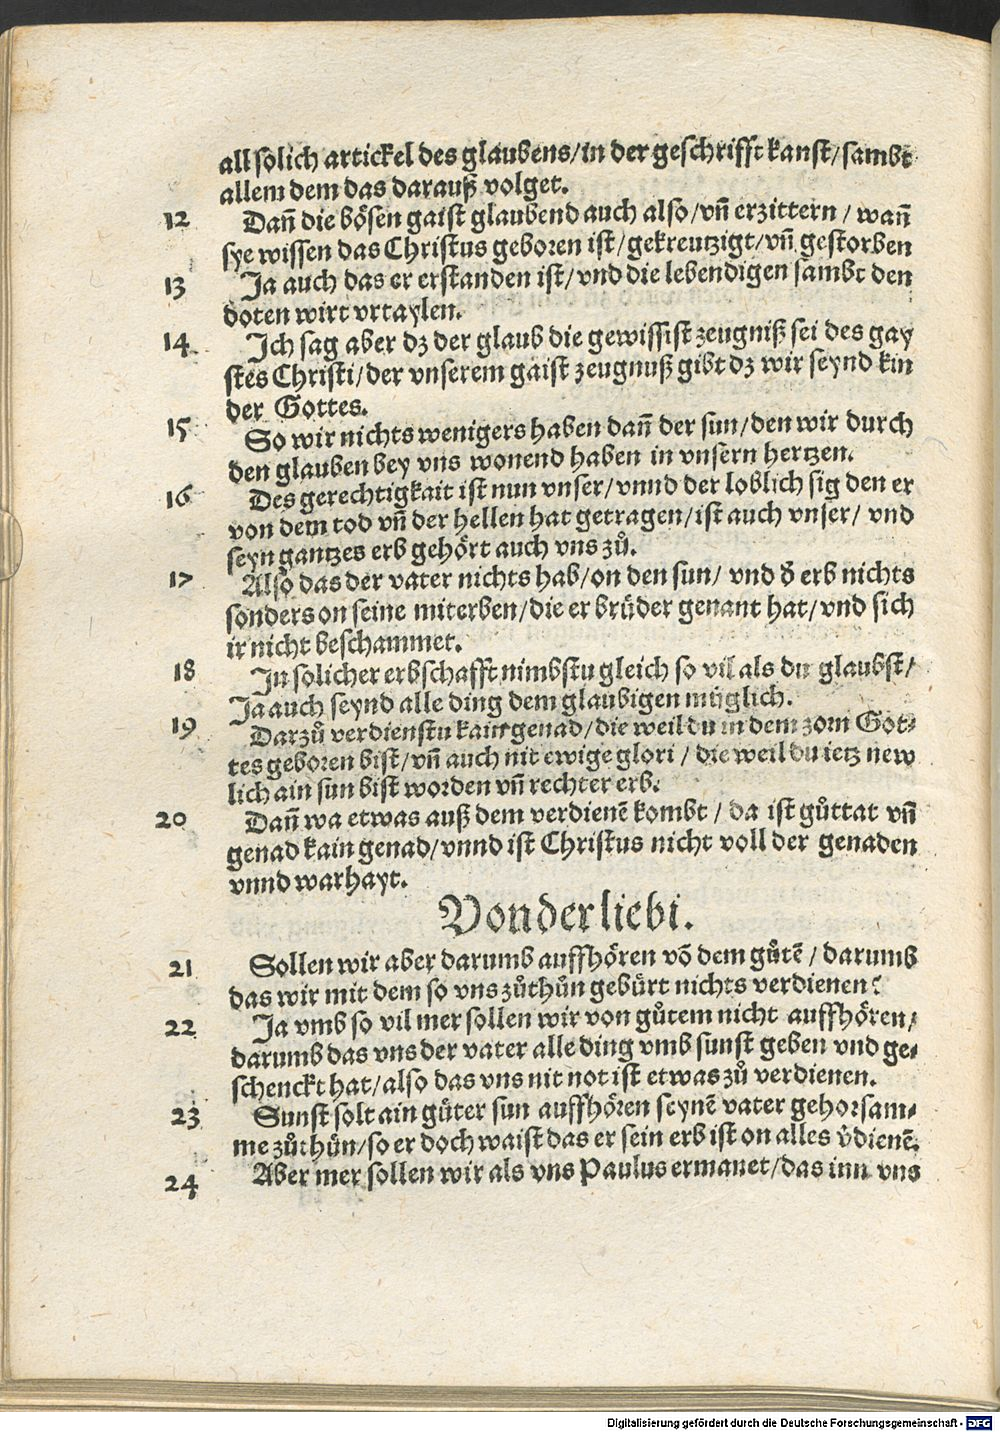 all solich artickel des glaubens/in der geschrifft kanst/sambt
allem dem das darauß volget.
12 Dañ die bösen gaist glaubend auch also/vñ erzittern / wañ
sye wissen das Christus geboren ist/gekreutzigt/vñ gestorben
13 Ja auch das er erstanden ist/vnd die lebendigen sambt den
doten wirt vrtaylen.
14 Ich sag aber dz der glaub die gewissist zeugniß sei des gay
stes Christi/der vnserem gaist zeugnuß gibt dz wir seynd kin
der Gottes.
15 So wir nichts wenigers haben dañ der sun/den wir durch
den glauben bey vns wonend haben in vnsern hertzen.
16 Des gerechtigkait ist nun vnser/vnnd der loblich sig den er
von dem tod vñ der hellen hat getragen/ist auch vnser/ vnd
seyn gantzes erb gehört auch vns zů.
17 Also das der vater nichts hab/on den sun/ vnd d̕ erb nichts
sonders on seine miterben/die er brüder genant hat/vnd sich
ir nicht beschammet.
18 In solicher erbschafft nimbstu gleich so vil als du glaubst/
Ja auch seynd alle ding dem glaubigen müglich.
19 Darzů verdienstu kain genad/die weil du in dem zorn Got⸗
tes geboren bist/vñ auch nit ewige glori / die weil du ietz new
lich ain sun bist worden vñ rechter erb.
20 Dañ wa etwas auß dem verdienē kombt / da ist gůttat vñ
genad kain genad/vnnd ist Christus nicht voll der genaden
vnnd warhayt.
Von der liebi.
21 Sollen wir aber darumb auffhören võ dem gůtē / darumb
das wir mit dem so vns zůthůn gebürt nichts verdienen?
22 Ja vmb so vil mer sollen wir von gůtem nicht auffhören/
darumb das vns der vater alle ding vmb sunst geben vnd ge⸗
schenckt hat/also das vns nit not ist etwas zů verdienen.
23 Sunst solt ain gůter sun auffhören seynē vater gehorsam⸗
me zůthůn/so er doch waist das er sein erb ist on alles v̕dienē.
24 Aber mer sollen wir als vns Paulus ermanet/das inn vns
Digitalisierung gefördert durch die Deutsche Forschungsgemeinschaft - DFG